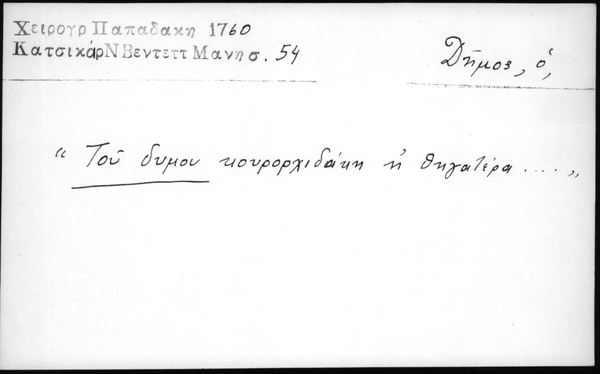 Χειρογρ Παπαδακη 1760
Κατσικάρ Ν Βεντεττ Μανη σ. 54
Δῆμος, ὁ,
“ Τοῦ δυμου κουρορχιδάκη ἡ θηγατέρα .... „